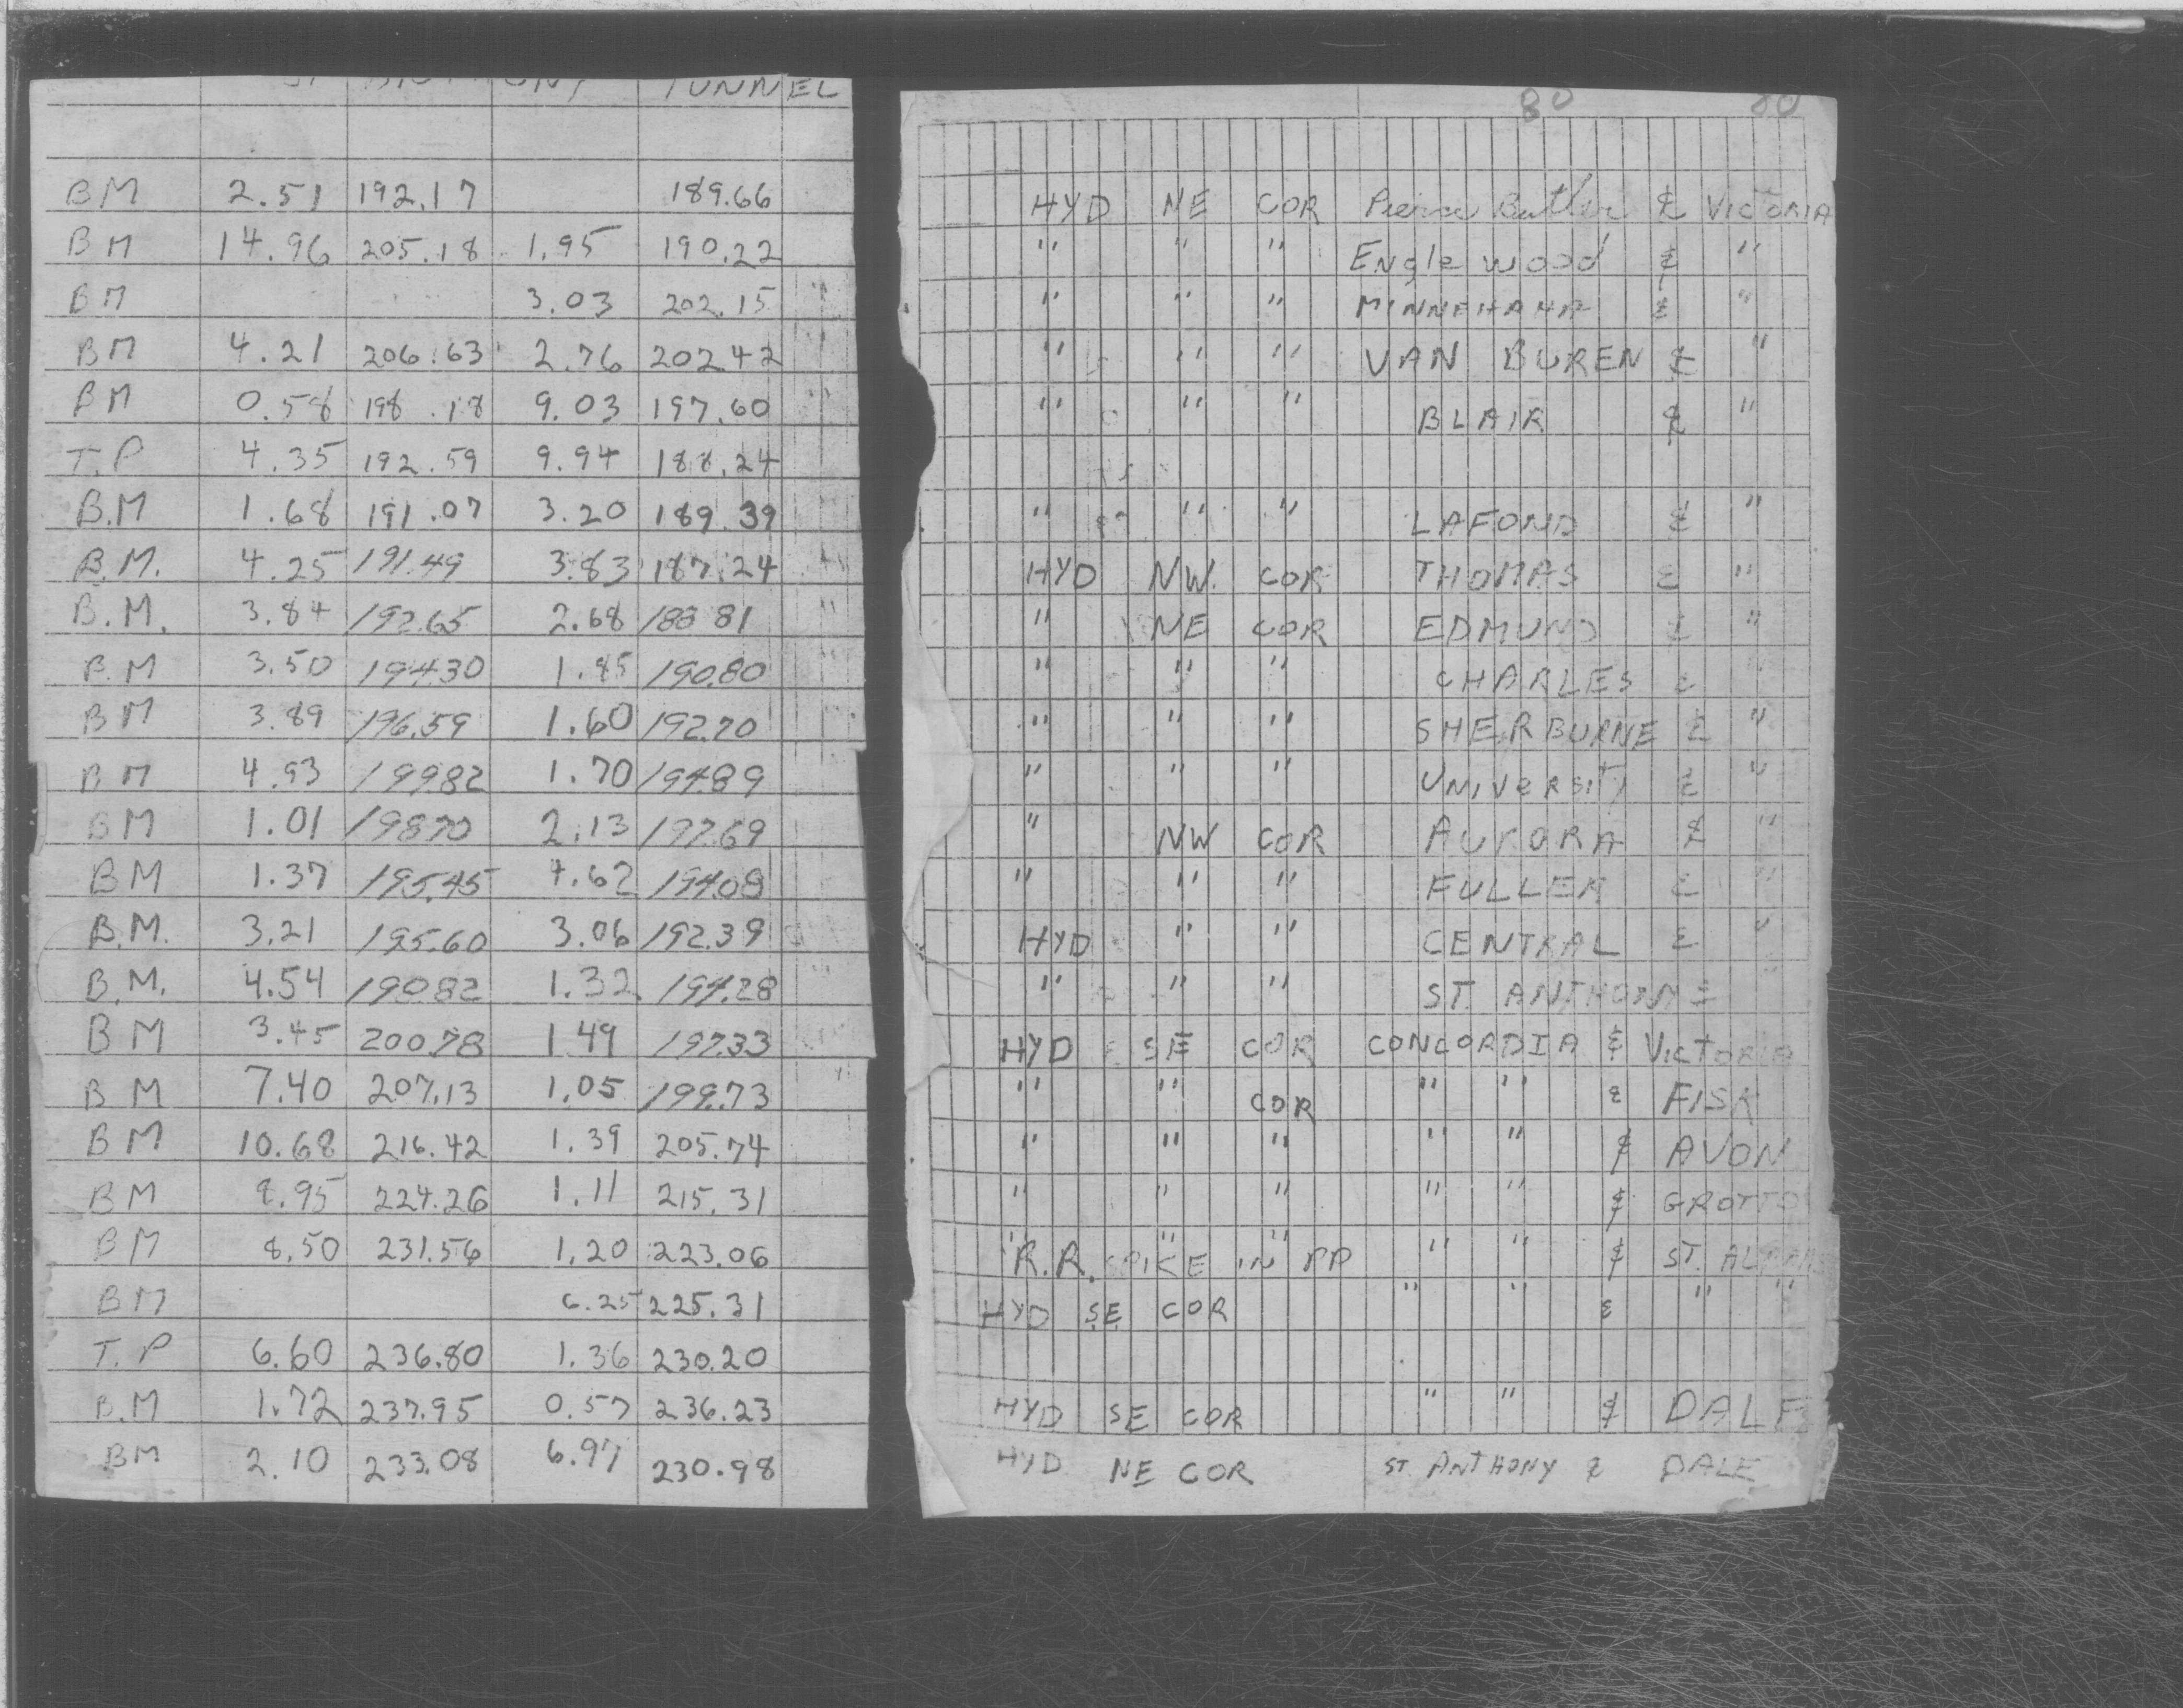 TUNNEL
BM 2.51 192.17 189.66
BM 14.96 205.18 1.95 190.22
BM 3.03 202.15 "
BM 4.21 206.63 2.76 202.42
BM 0.58 198.18 9.03 197.60 "
T.P 4.35 192.59 9.94 188.24
B.M 1.68 191.07 3.20 189.39
B.M. 4.25 191.49 3.83 187.24
B.M. 3.84 192.65 2.68 188 81 "
B.M 3.50 194.30 1.85 190.80
BM 3.89 196.59 1.60 192.70
BM 4.93 199 82 1.70 194.89
BM 1.01 198 70 2.13 197.69
BM 1.37 195.45 4.62 194.08
B.M. 3.21 195.60 3.06 192.39
B.M. 4.54 190 82 1.32 194.28
BM 3.45 200.78 1.49 197.33
BM 7.40 207.13 1.05 199.73
BM 10.68 216.42 1.39 205.74
BM 8.95 224.26 1.11 215.31
BM 8.50 231.56 1.20 223.06
BM 6.25 225.31
T.P 6.60 236.80 1.36 230.20
B.M 1.72 237.95 0.57 236.23
BM 2.10 233.08 6.97 230.98
80 80
HYD NE COR Pierce Butler & VICTORIA
" " " Engle wood & "
" " " MINNEHAHA & "
" " " VAN BUREN & "
" " " BLAIR & "
" " " LAFOND & "
HYD NW. COR THOMAS & "
" NE COR EDMUND & "
" " " CHARLES & "
" " " SHERBURNE & "
" " " UNIVERSITY & "
" NW COR AURORA & "
" " " FULLER & "
HYD " " CENTRAL & "
" " " ST. ANTHONY & "
HYD SE COR CONCORDIA & VICTORIA
" " COR " " & FISK
" " " " " & AVON
" " " " " & GROTTO
" " "
R.R. SPIKE IN PP " " & ST. ALBANS
HYD SE COR " " & " "
HYD SE COR " " & DALE
HYD NE COR ST. ANTHONY & DALE